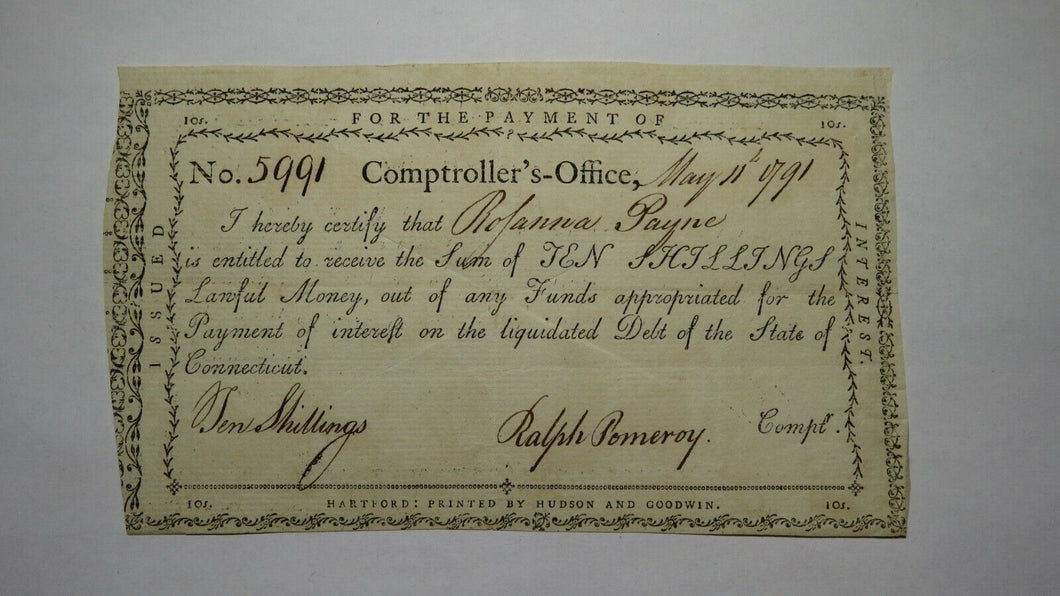 10s. FOR THE PAYMENT OF 10s.
No. 5991 Comptroller's-Office, May 11th 1791
I hereby certify that Roſanna Payne
is entitled to receive the Sum of TEN SHILLINGS
Lawful Money, out of any Funds appropriated for the
Payment of intereſt on the liquidated Debt of the State of
Connecticut.
Ten Shillings Ralph Pomeroy. Compt^r.
10s. HARTFORD: PRINTED BY HUDSON AND GOODWIN. 10s.
ISSUED
INTEREST.